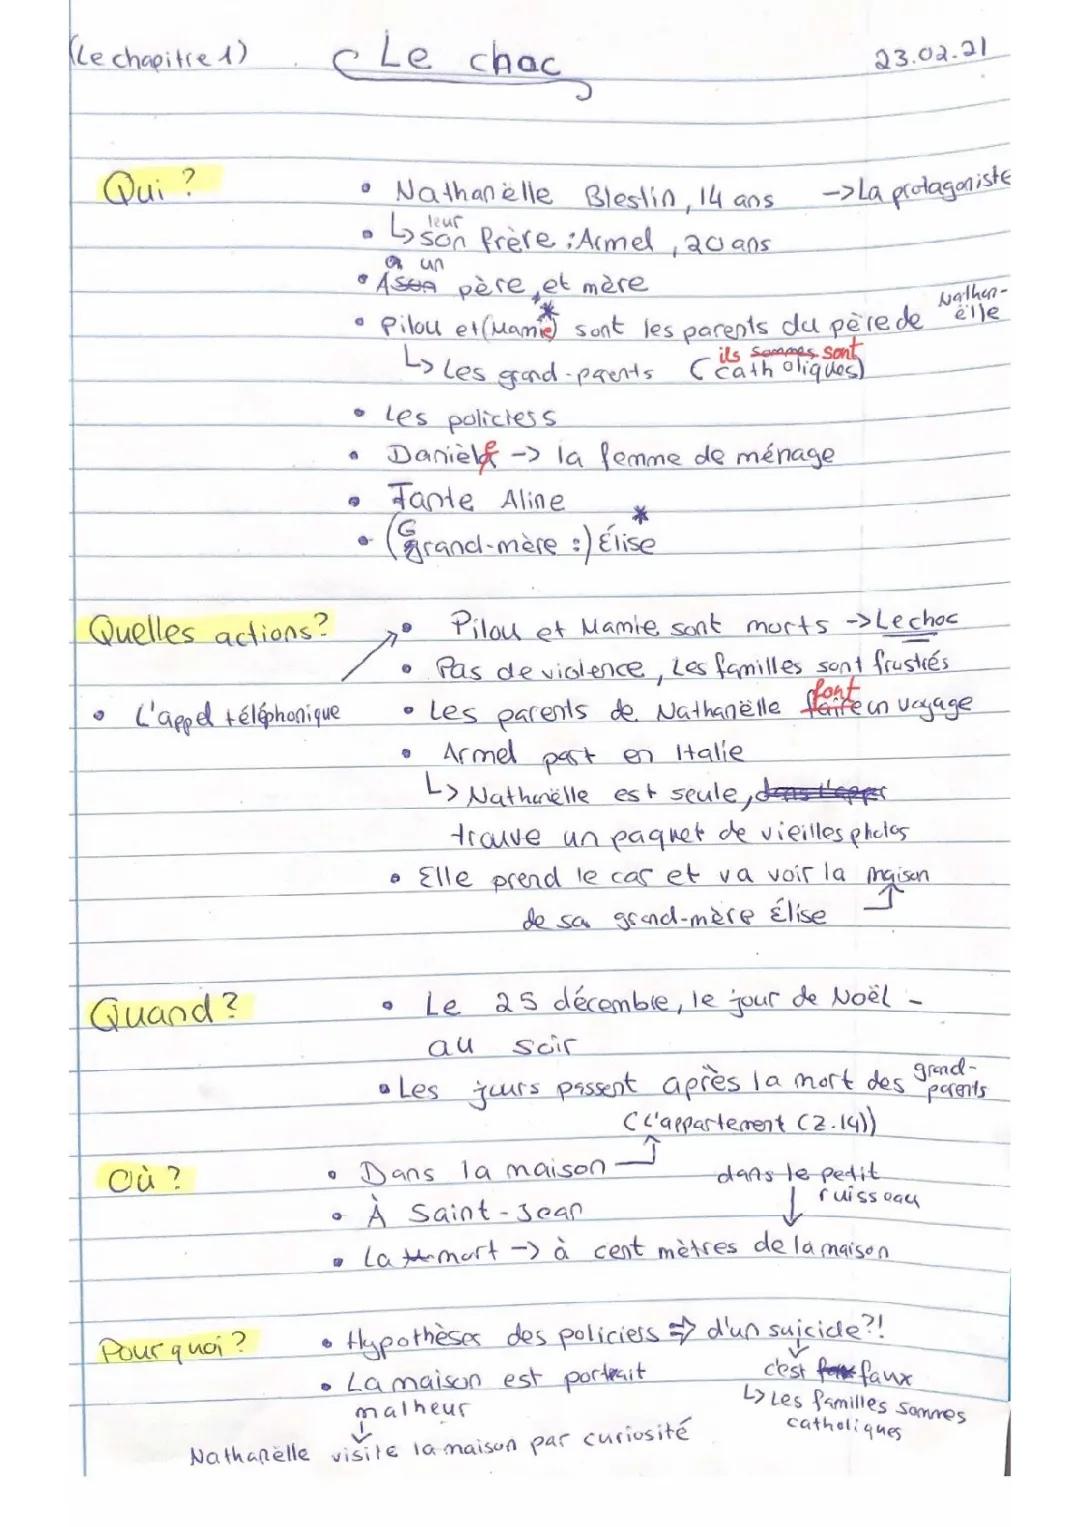 (Le chapitre 1) Le choc 23.02.21
Qui ? • Nathanëlle Bleslin, 14 ans -> La protagoniste
leur
• ↳ son frère : Armel, 20 ans
un
• A père, et mère
• Pilou et (Mamie)* sont les parents du père de Nathan-ëlle
ils sommes sont
↳ Les grand-parents (catholiques)
• Les policiers
• Danièle -> la femme de ménage
• Tante Aline
• (Grand-mère :) Élise *
Quelles actions? • Pilou et Mamie sont morts -> Le choc
• Pas de violence, Les familles sont frustrés
font
• L'appel téléphonique • Les parents de Nathanëlle faire un voyage
• Armel part en Italie
↳ Nathanëlle est seule, dans l'apper
trouve un paquet de vieilles photos
• Elle prend le car et va voir la maison
de sa grand-mère Élise
Quand? • Le 25 décembre, le jour de Noël -
au soir
• Les jours passent après la mort des grand-parents
(L'appartement (Z.14))
Où ? • Dans la maison dans le pedit
ruisseau
• À Saint-Jean
• La mort -> à cent mètres de la maison
Pourquoi ? • Hypothèses des policiers => d'un suicide?!
• La maison est portrait c'est faux
malheur ↳ Les familles sommes
catholiques
Nathanëlle visite la maison par curiosité